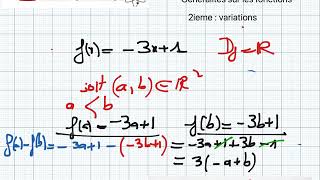 Généralités sur les fonctions
2ieme : variations
f(x) = -3x+1 Df=ℝ
soit (a,b)∈ℝ²
a < b
f(a) = -3a+1 f(b) = -3b+1
f(a)-f(b) = -3a+1-(-3b+1) = -3a+1+3b-1
= 3(-a+b)